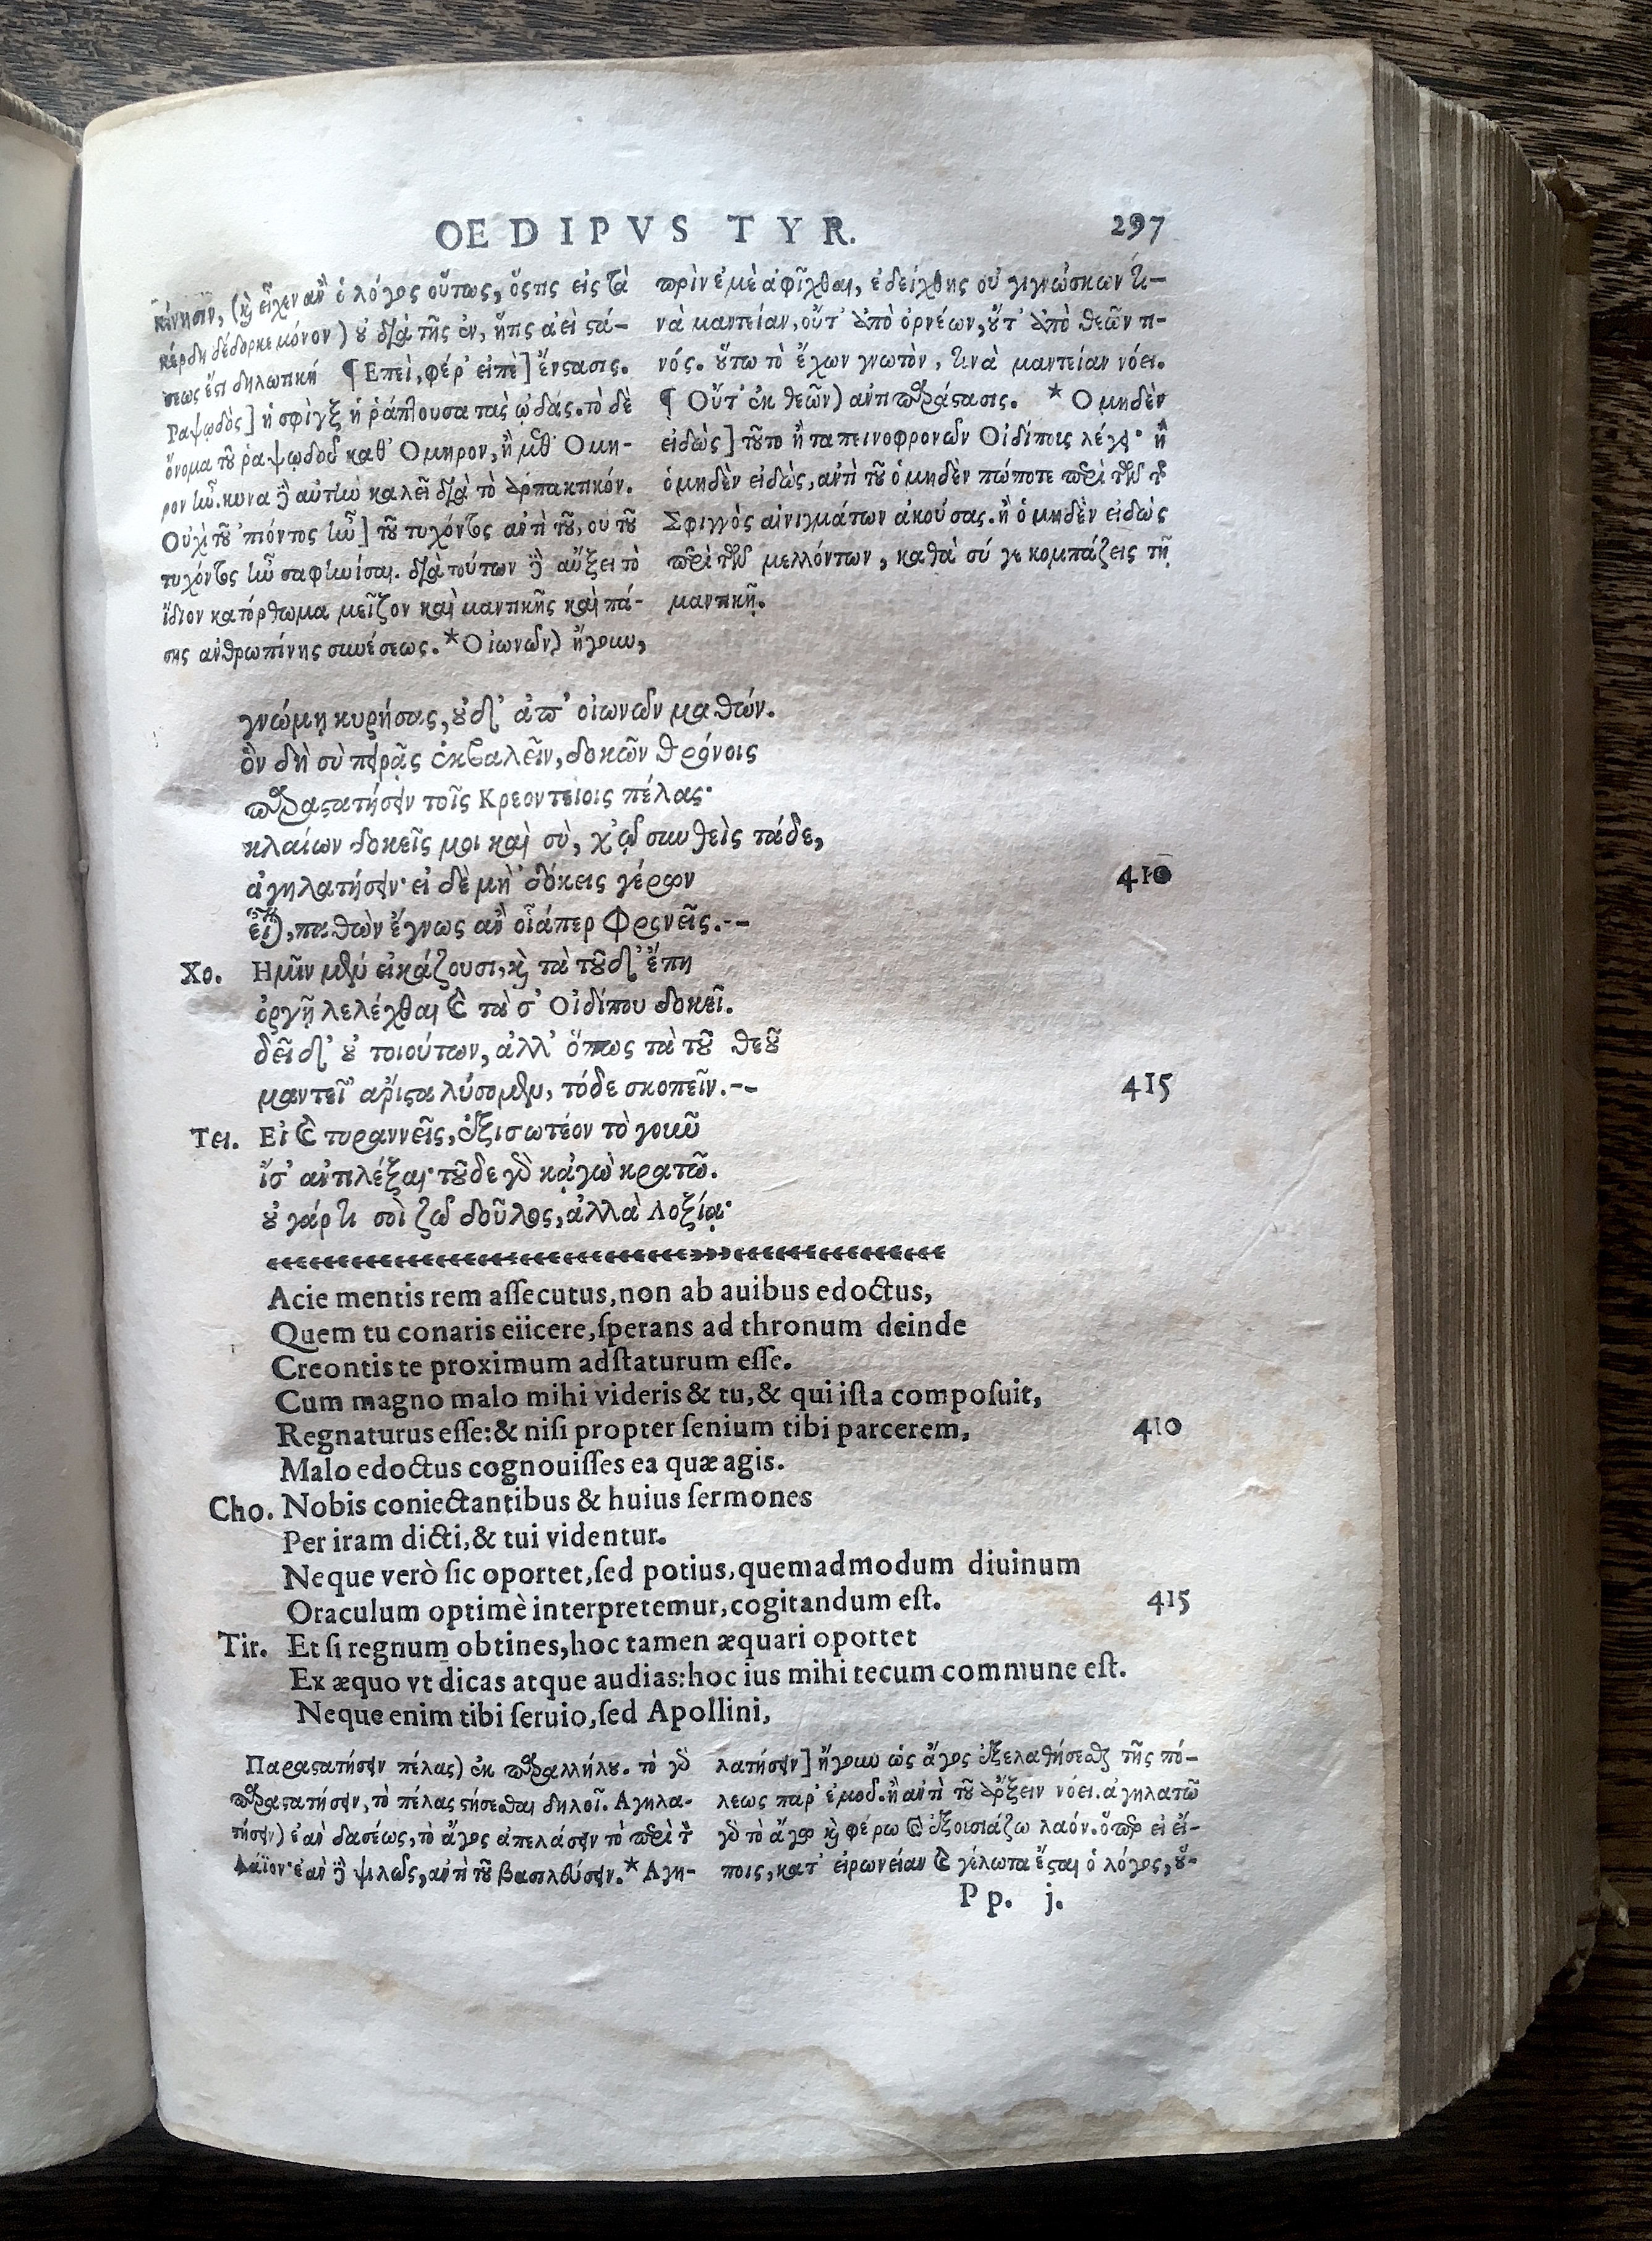 OEDIPVS TYR. 297
κίνησιν, (καὶ εἶχεν ἂν ὁ λόγος οὕτως, ὅστις εἰς τὰ
κέρδη δέδορκε μόνον) οὐ διὰ τῆς ἐν, ἥτις ἀεὶ στά-
σεως ἔστι δηλωτική ¶ Επεὶ, φέρ' εἰπὲ] ἔνστασις.
Ραψῳδὸς] ἡ σφὶγξ ἡ ῥάπτουσα τὰς ᾠδάς. τὸ δὲ
ὄνομα τοῦ ραψῳδοῦ καθ' Ομηρον, ἢ μεθ' Ομη-
ρον ἦν. κυνα δὲ αὐτὴν καλεῖ διὰ τὸ ἁρπακτικόν.
Οὐχὶ τοῦ 'πιόντος ἦν] τοῦ τυχόντος ἀντὶ τοῦ, οὐ τοῦ
τυχόντος ἦν σαφηνίσαι. διὰ τούτων δὲ αὔξει τὸ
ἴδιον κατόρθωμα μεῖζον καὶ μαντικῆς καὶ πά-
σης ἀνθρωπίνης συνέσεως. * Οἰωνῶν) ἤγουν,
πρὶν ἐμὲ ἀφῖχθαι, ἐδείχθης οὐ γιγνώσκων τι-
νὰ μαντείαν, οὔτ' ἀπὸ ὀρνέων, οὔτ' ἀπὸ θεῶν τι-
νός. οὕτω τὸ ἔχων γνωτὸν, τινὰ μαντείαν νόει.
¶ Οὔτ' ἐκ θεῶν) ἀντιπαράστασις. * Ο μηδὲν
εἰδὼς] τοῦτο ἢ ταπεινοφρονῶν Οἰδίποις λέγει· ἢ
ὁ μηδὲν εἰδὼς, ἀντὶ τοῦ ὁ μηδὲν πώποτε περὶ τῶν τῆς
Σφιγγὸς αἰνιγμάτων ἀκούσας. ἢ ὁ μηδὲν εἰδὼς
περὶ τῶν μελλόντων, καθὰ σύ γε κομπάζεις τῇ
μαντικῇ.
γνώμῃ κυρήσας, οὐδ' ἀπ' οἰωνῶν μαθών.
ὃν δὴ σὺ πειρᾷς ἐκβαλεῖν, δοκῶν θρόνοις
παραστατήσειν τοῖς Κρεοντείοις πέλας·
κλαίων δοκεῖς μοι καὶ σὺ, χ' ὡ συνθεὶς τάδε,
ἀγηλατήσειν· εἰ δὲ μὴ 'δόκεις γέρων 410
εἶναι, παθὼν ἔγνως ἂν οἷάπερ φρονεῖς.--
Χο. Ημῖν μὲν εἰκάζουσι, καὶ τὰ τοῦδ' ἔπη
ὀργῇ λελέχθαι καὶ τὰ σ' Οἰδίπου δοκεῖ.
δεῖ δ' οὐ τοιούτων, ἀλλ' ὅπως τὰ τοῦ θεοῦ
μαντεῖ' ἄριστα λύσομεν, τόδε σκοπεῖν.-- 415
Τει. Εἰ καὶ τυραννεῖς, ἐξισωτέον τὸ γοῦν
ἴσ' ἀντιλέξαι· τοῦδε γὰρ κᾀγὼ κρατῶ.
οὐ γάρ τι σοὶ ζῶ δοῦλος, ἀλλὰ Λοξίᾳ·
Acie mentis rem assecutus, non ab auibus edoctus,
Quem tu conaris eiicere, sperans ad thronum deinde
Creontis te proximum adstaturum esse.
Cum magno malo mihi videris & tu, & qui ista composuit,
Regnaturus esse: & nisi propter senium tibi parcerem, 410
Malo edoctus cognouisses ea quæ agis.
Cho. Nobis coniectantibus & huius sermones
Per iram dicti, & tui videntur.
Neque verò sic oportet, sed potius, quemadmodum diuinum
Oraculum optimè interpretemur, cogitandum est. 415
Tir. Et si regnum obtines, hoc tamen æquari oportet
Ex æquo vt dicas atque audias: hoc ius mihi tecum commune est.
Neque enim tibi seruio, sed Apollini,
Παραστατήσειν πέλας) ἐκ παραλλήλου. τὸ γὰρ
παραστατήσειν, τὸ πέλας στήσεσθαι δηλοῖ. Αγηλα-
τήσειν) ἐὰν δασέως, τὸ ἄγος ἀπελάσειν τὸ περὶ τὸν
Λάϊον· ἐὰν δὲ ψιλῶς, ἀντὶ τοῦ βασιλεύσειν. * Αγη-
λατήσειν] ἤγουν ὡς ἄγος ἐξελαθήσεσθαι τῆς πό-
λεως παρ' ἐμοῦ. ἢ ἀντὶ τοῦ ἄρξειν νόει. ἀγηλατῶ
γὰρ τὸ ἄγω καὶ φέρω καὶ ἐξουσιάζω λαόν. ὅπερ εἰ εἴ-
ποις, κατ' εἰρωνείαν καὶ γέλωτα ἔσται ὁ λόγος, οὐ-
Pp. j.